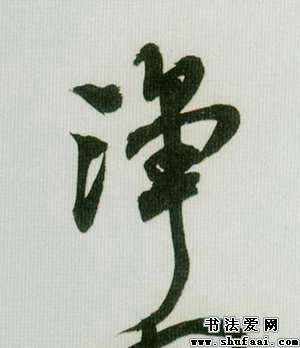 淨
书法爱网
www.shufaai.com